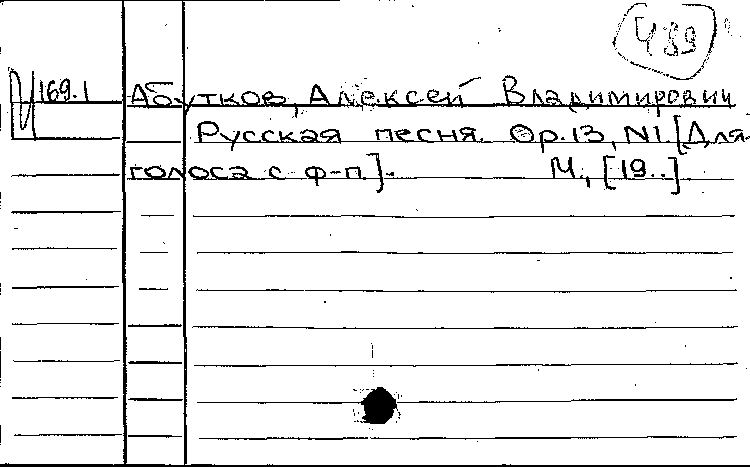 489
169.1 Абутков, Алексей Владимирович
Русская песня. Op.13, N1. [Для
голоса с ф-п.].
М., [19..].